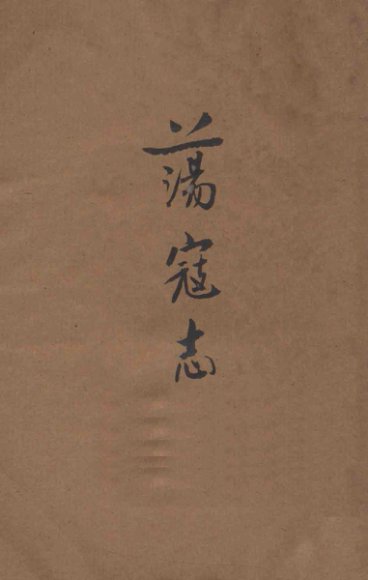 蕩寇志